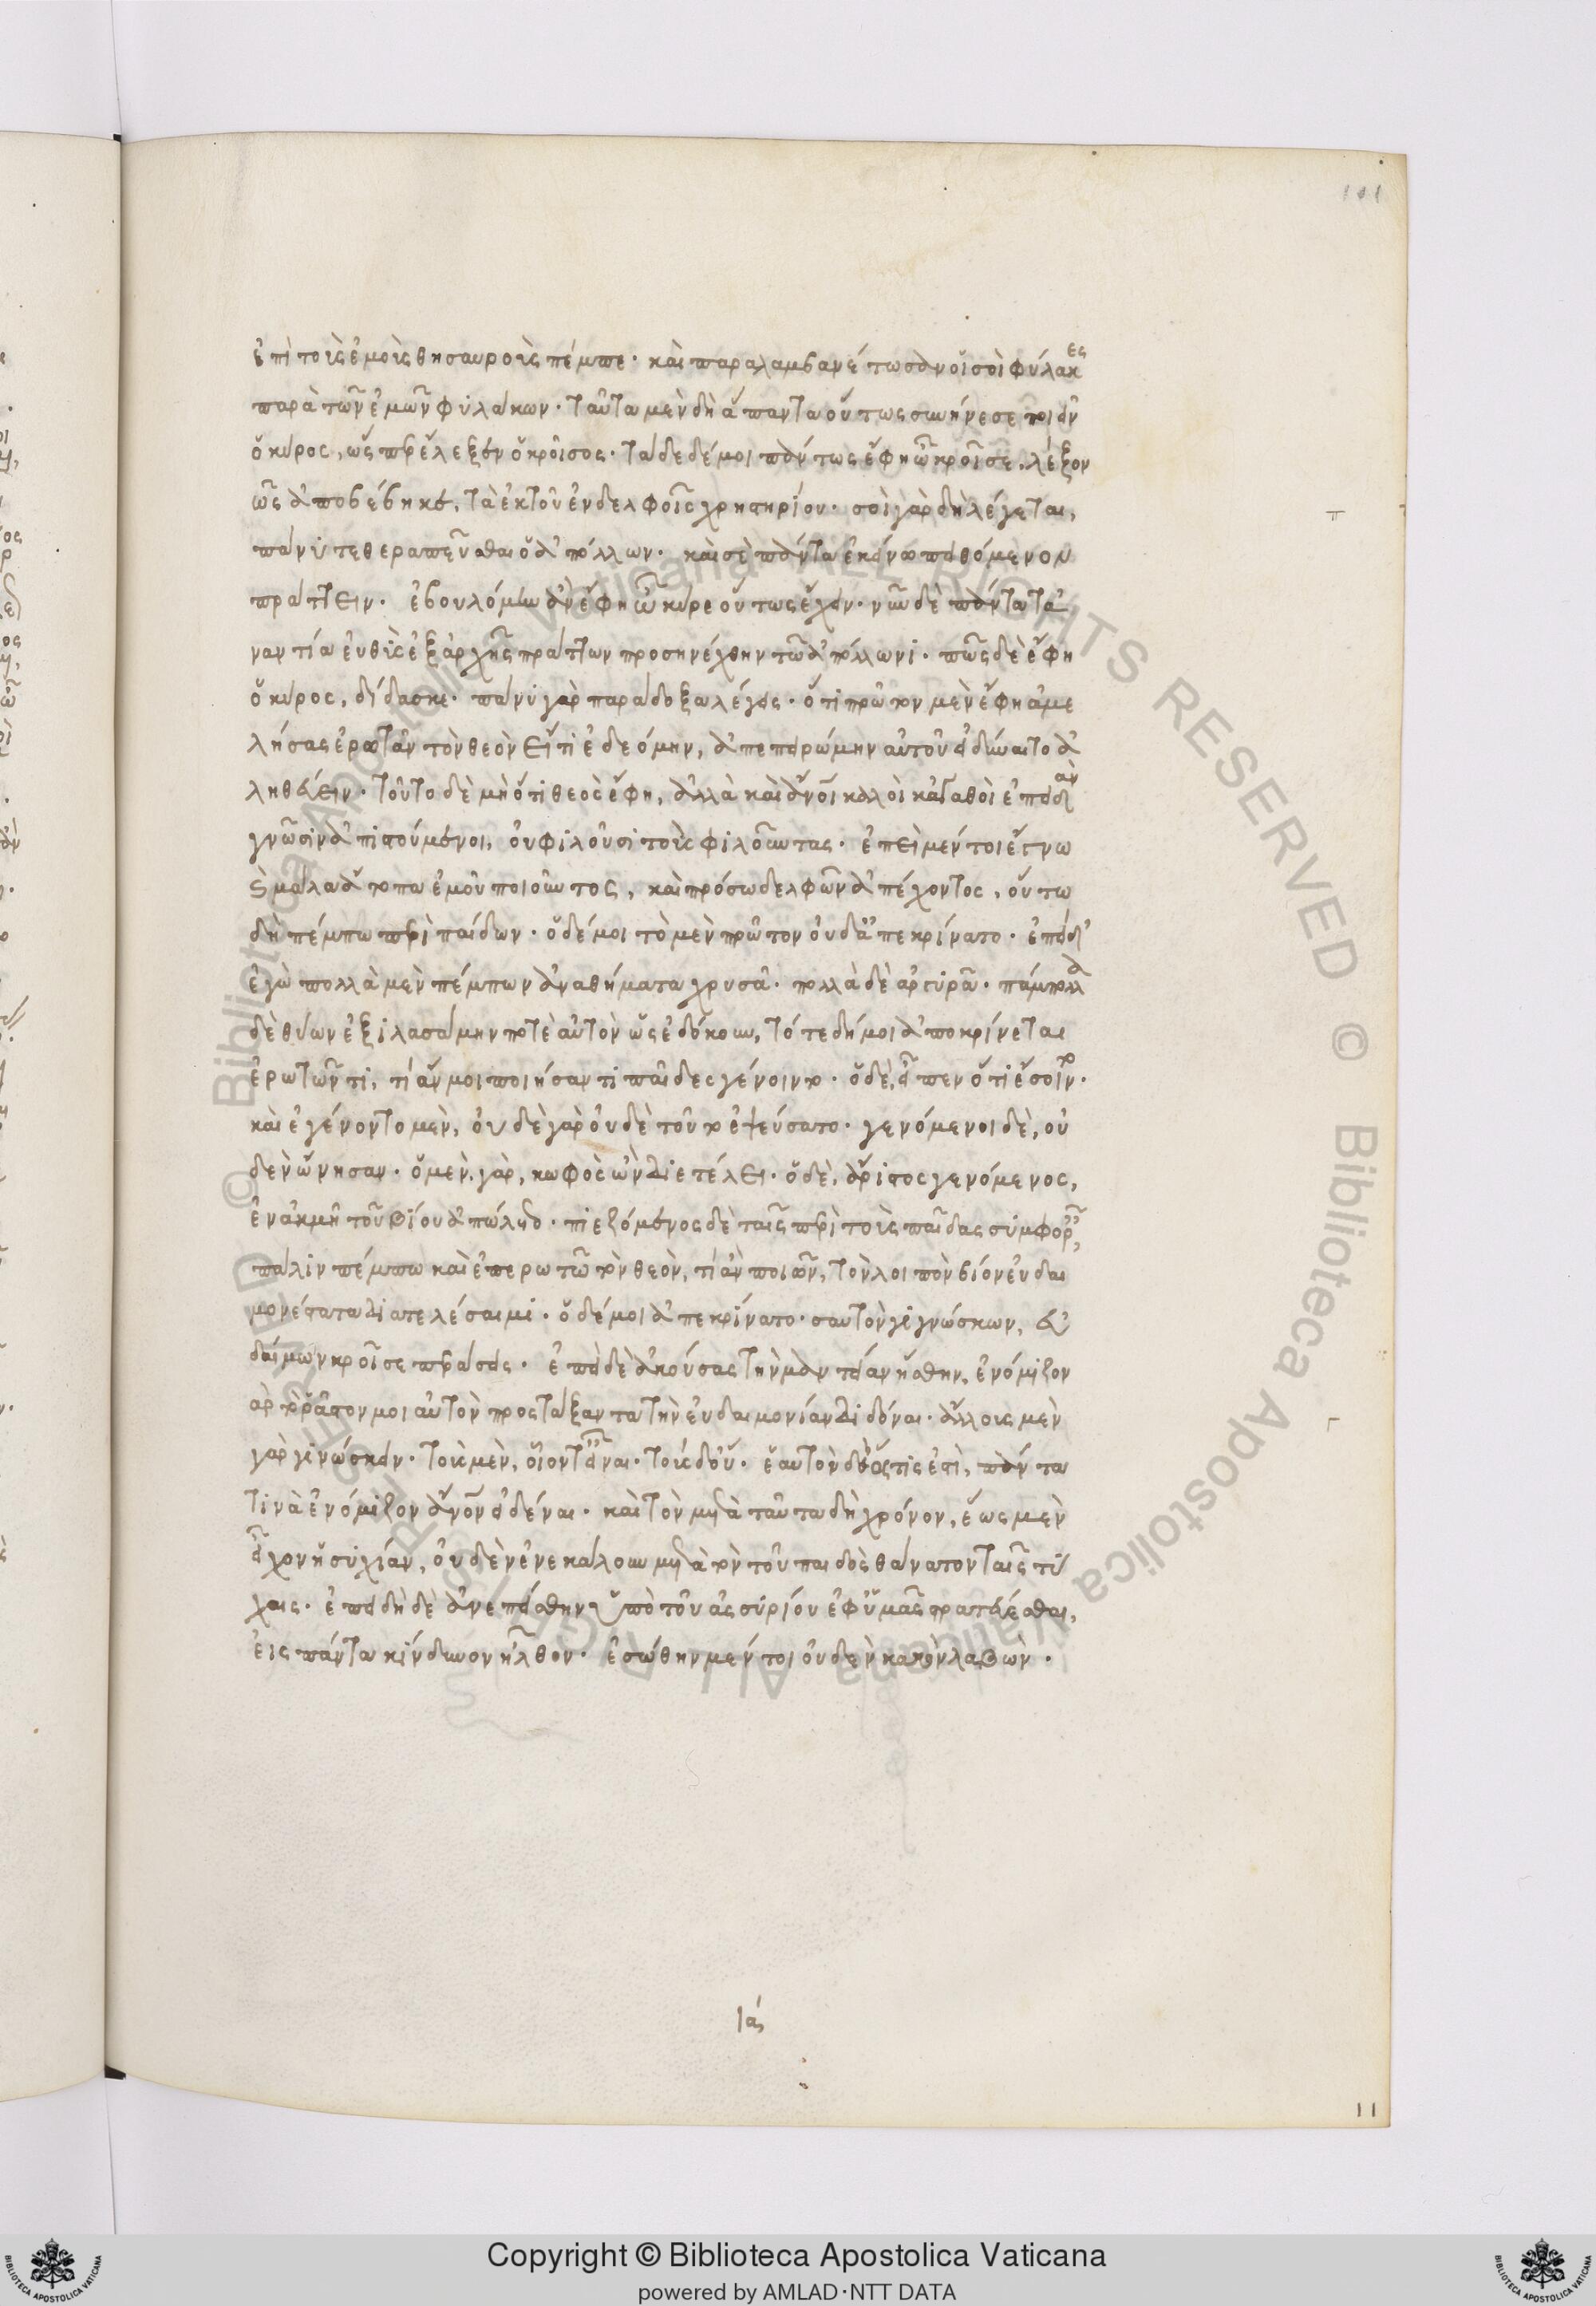 101
ἐπὶ τοῖς ἐμοῖς θησαυροῖς πέμπε· καὶ παραλαμβανέτωσαν οἱ σοὶ φύλακες
παρὰ τῶν ἐμῶν φυλάκων· ταῦτα μὲν δὴ ἅπαντα οὕτως συνήνεσε ποιεῖν
ὁ κῦρος, ὥσπερ ἔλεξεν ὁ κροῖσος· τάδε δέ μοι πάντως ἔφη ὦ κροῖσε, λέξον
ὡς ἀποβέβηκε, τὰ ἐκ τοῦ ἐν δελφοῖς χρηστηρίου· σοὶ γὰρ δὴ λέγεται,
πάνυ τε θεραπεῦσθαι ὁ ἀπόλλων· καὶ σὲ πάντα ἐκείνω πειθόμενον
πράττειν· ἐβουλόμην ἂν ἔφη ὦ κῦρε οὕτως ἔχειν· νῦν δὲ πάντα τἀ
ναντία εὐθὺς ἐξ ἀρχῆς πράττων προσηνέχθην τῶ ἀπόλλωνι· πῶς δὲ ἔφη
ὁ κῦρος, δίδασκε· πάνυ γὰρ παράδοξα λέγεις· ὅτι πρῶτον μὲν ἔφη ἀμε
λήσας ἐρωτᾶν τὸν θεὸν εἴ τι ἐδεόμην, ἀπεπειρώμην αὐτοῦ εἰ δύναιτο ἀ
ληθεύειν· τοῦτο δὲ μὴ ὅτι θεὸς ἔφη, ἀλλὰ καὶ ἄνοι καλοὶ κἀγαθοὶ ἐπειδὰν
γνῶσιν ἀπιστούμενοι, οὐ φιλοῦσι τοὺς φιλοῦντας· ἐπεὶ μέντοι ἔγνω
ς μάλα ἄτοπα ἐμοῦ ποιοῦντος, καὶ πρόσω δελφῶν ἀπέχοντος, οὕτω
δὴ πέμπω περὶ παίδων· ὁ δέ μοι τὸ μὲν πρῶτον οὐδ' ἀπεκρίνατο· ἐπεὶ δ'
ἐγὼ πολλὰ μὲν πέμπων ἀναθήματα χρυσᾶ· πολλὰ δὲ ἀργυρᾶ· πάμπολλα
δὲ θύων ἐξιλασάμην ποτὲ αὐτὸν ὡς ἐδόκουν, τότε δή μοι ἀποκρίνεται
ἐρωτῶντι, τί ἄν μοι ποιήσαντι παῖδες γένοιντο· ὁ δὲ, εἶπεν ὅτι ἔσοιντο·
καὶ ἐγένοντο μὲν, οὐδὲ γὰρ οὐδὲ τοῦτο ἐψεύσατο· γενόμενοι δὲ, οὐ
δὲν ὤνησαν· ὁ μὲν γὰρ, κωφὸς ὢν διετέλει· ὁ δὲ, ἄριστος γενόμενος,
ἐν ἀκμῆ τοῦ βίου ἀπώλετο· πιεζόμενος δὲ ταῖς περὶ τοὺς παῖδας συμφοραῖς,
πάλιν πέμπω καὶ ἐπερωτῶ τὸν θεὸν, τί ἂν ποιῶν, τὸν λοιπὸν βίον εὐδαι
μονέστατα διατελέσαιμι· ὁ δέ μοι ἀπεκρίνατο· σαυτὸν γιγνώσκων, εὐ
δαίμων κροῖσε περάσεις· ἐγὼ δὲ ἀκούσας τὴν μαντείαν ἥσθην, ἐνόμιζον
γὰρ τὸ ῥᾷστον μοι αὐτὸν προστάξαντα τὴν εὐδαιμονίαν διδόναι· ἄλλους μὲν
γὰρ γινώσκειν· τοὺς μὲν, οἷόν τ' εἶναι· τοὺς δ' οὔ· ἑαυτὸν δὲ ὅστις ἐστὶ, πάντα
τινὰ ἐνόμιζον ἄνον εἰδέναι· καὶ τὸν μετὰ ταῦτα δὴ χρόνον, ἕως μὲν
εἶχον ἡσυχίαν, οὐδὲν ἐνεκάλουν μετὰ τὸν τοῦ παιδὸς θάνατον ταῖς τύ
χαις· ἐπειδὴ δὲ ἀνεπείσθην ὑπὸ τοῦ ἀσσυρίου ἐφ' ὑμᾶς στρατεύεσθαι,
εἰς πάντα κίνδυνον ἦλθον· ἐσώθην μέντοι οὐδὲν κακὸν λαβών·
ια
11
© Biblioteca Apostolica Vaticana ALL RIGHTS RESERVED © Biblioteca Apostolica Vaticana ALL RIGHTS RESERVED
Copyright © Biblioteca Apostolica Vaticana
powered by AMLAD·NTT DATA